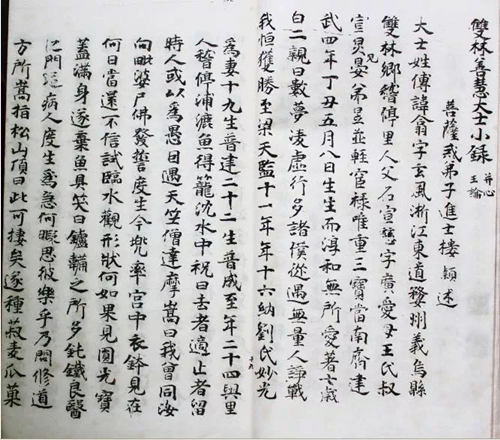 雙林善慧大士小録 并心王論
菩薩戒弟子進士樓頴述
大士姓傅諱翕字玄風淅江東道婺州義烏縣
雙林鄉稽停里人父名宣慈字廣愛母王氏叔
宣昃兄晏弟昱並輕官祿唯重三寶當南齊建
武四年丁丑五月八日生生而淳和無所愛著七歲
白二親曰數夢凌虛行多諸僕從遇無量人諍戰
我恒獲勝至梁天監十一年年十六納劉氏妙光
爲妻十九生普建二十二生普成至年二十四與里
人稽停浦漉魚得籠沈水中祝曰去者適止者留
時人或以爲愚因遇天竺僧達摩嵩曰我曾同汝
向毗婆尸佛發誓度生今兜率宮中衣鉢見在
何日當還不信試臨水觀形狀何如果見圓光寶
蓋滿身遂棄魚具笑曰鑪鞴之所多鈍鐵良醫
之門足病人度生爲急何暇思彼樂乎乃問修道
方所嵩指松山頂曰此可棲矣遂種蔬麦瓜菓